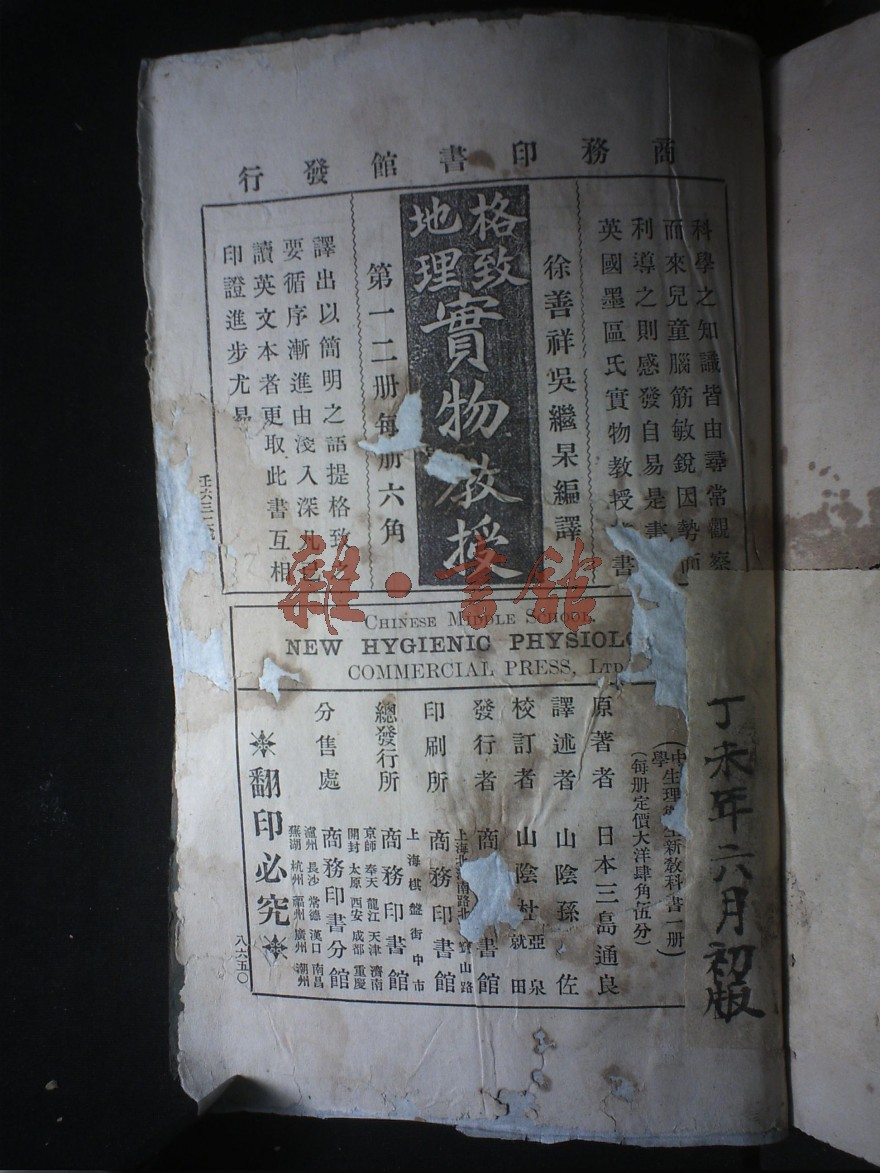 商務印書館發行
科學之知識皆由尋常觀察
而來兒童腦筋敏銳因勢而
利導之則感發自易是書
英國墨區氏實物教授書
徐善祥吳繼杲編譯
格致
地理
實物教授
第一二册每册六角
譯出以簡明之語提格致之
要循序漸進由淺入深凡已
讀英文本者更取此書互相
印證進步尤易
雜·書館
CHINESE MIDDLE SCHOOL
NEW HYGIENIC PHYSIOLO
COMMERCIAL PRESS, LTD
丁未年六月初版
中學生理 新教科書一册
(每册定價大洋肆角伍分)
原著者 日本三島通良
譯述者 山陰孫 佐
校訂者 山陰杜亞泉 就田
發行者 商 書館
上海北 南路北 寶山路
印刷所 商務印書館
上海棋盤街中市
總發行所 商務印書館
京師 奉天 龍江 天津 濟南
開封 太原 西安 成都 重慶
分售處 商務印書分館
瀘州 長沙 常德 漢口 南昌
蕪湖 杭州 福州 廣州 潮州
翻印必究
八六五〇